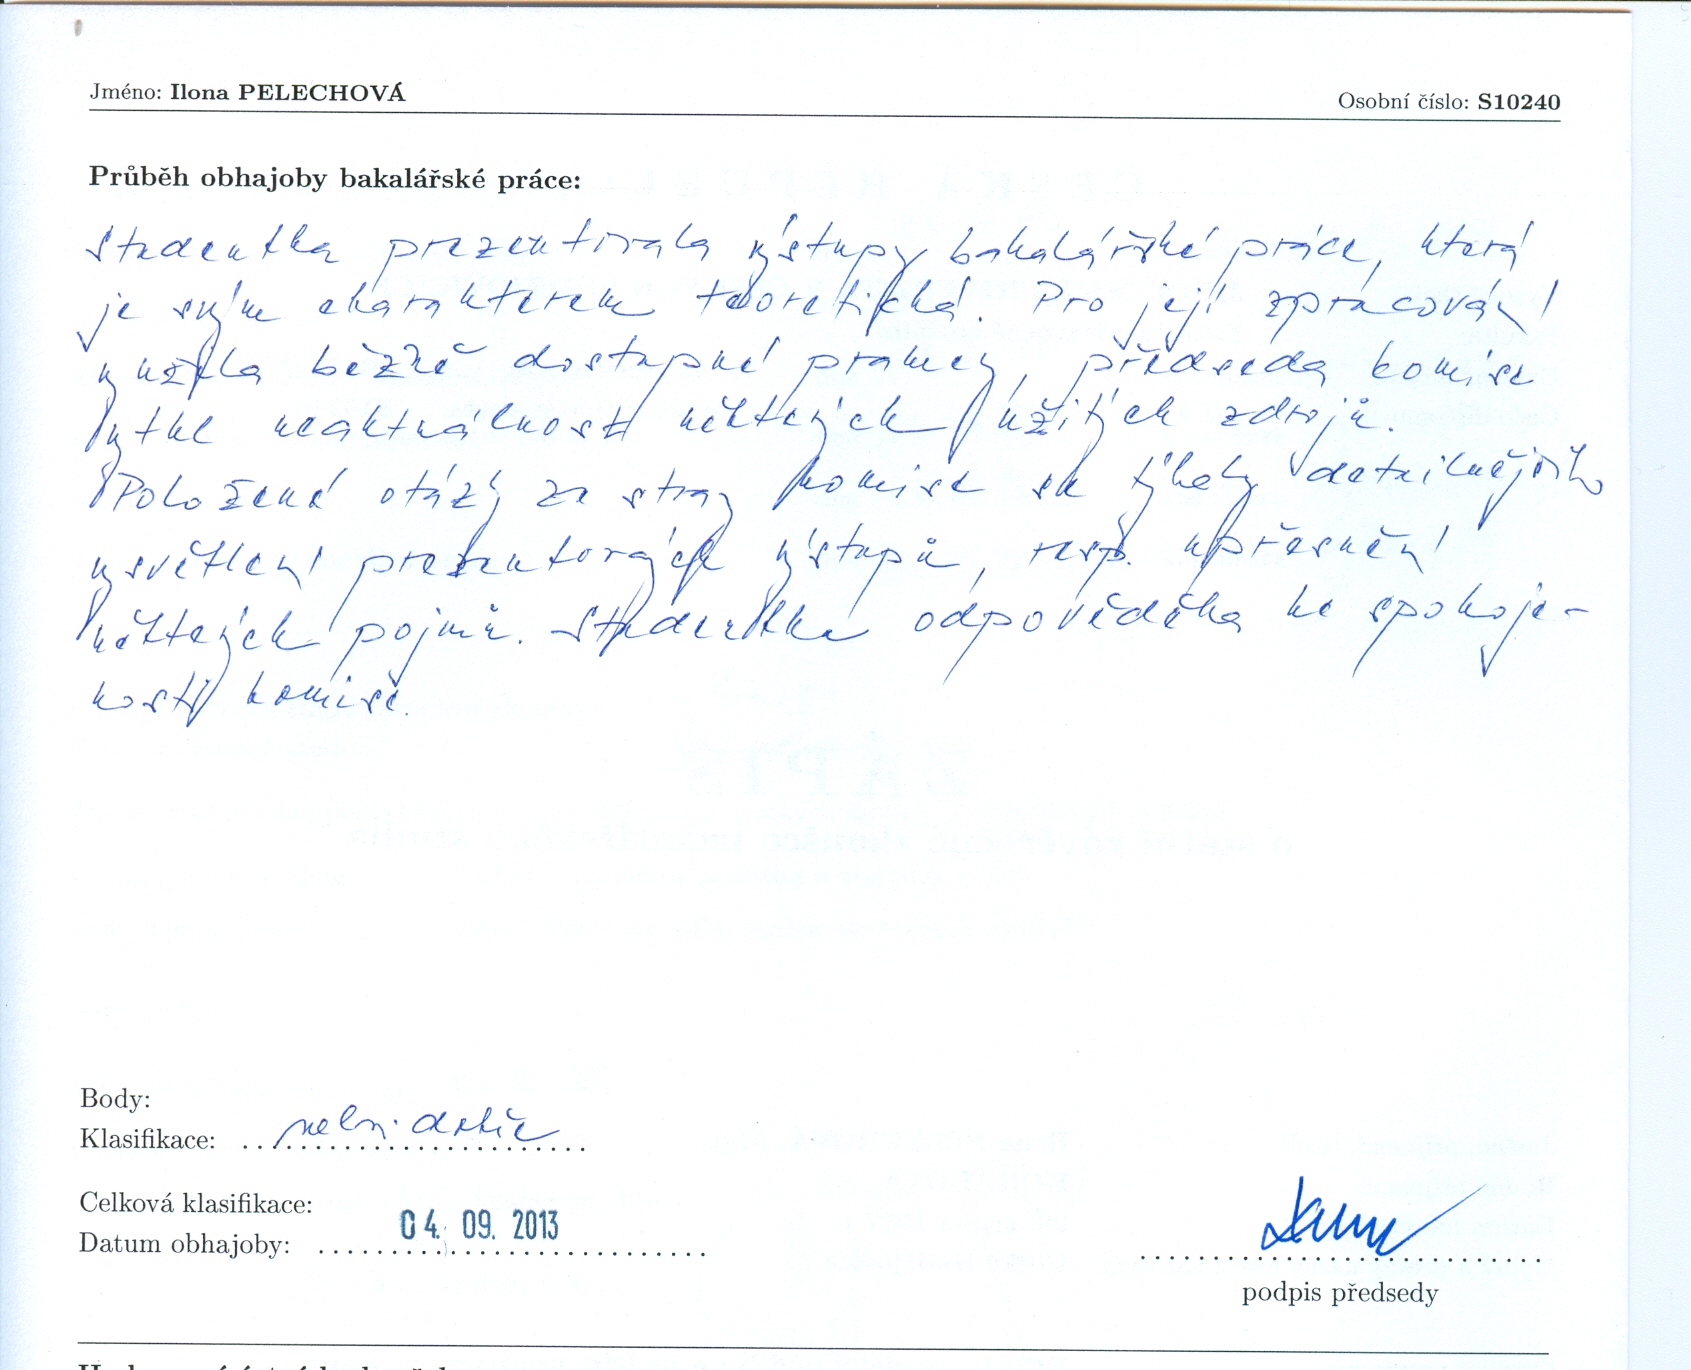 Jméno: Ilona PELECHOVÁ
Osobní číslo: S10240
Průběh obhajoby bakalářské práce:
Studentka prezentovala výstupy bakalářské práce, která
je svým charakterem teoretická. Pro její zpracování
využila běžně dostupné prameny, předseda komise
vytkl neaktuálnost některých užitých zdrojů.
Položené otázky ze strany komise se týkaly detailnějšího
vysvětlení prezentovaných výstupů, resp. upřesnění
některých pojmů. Studentka odpověděla ke spokoje-
nosti komise.
Body:
Klasifikace: velmi dobře
Celková klasifikace:
Datum obhajoby: 04. 09. 2013
podpis předsedy